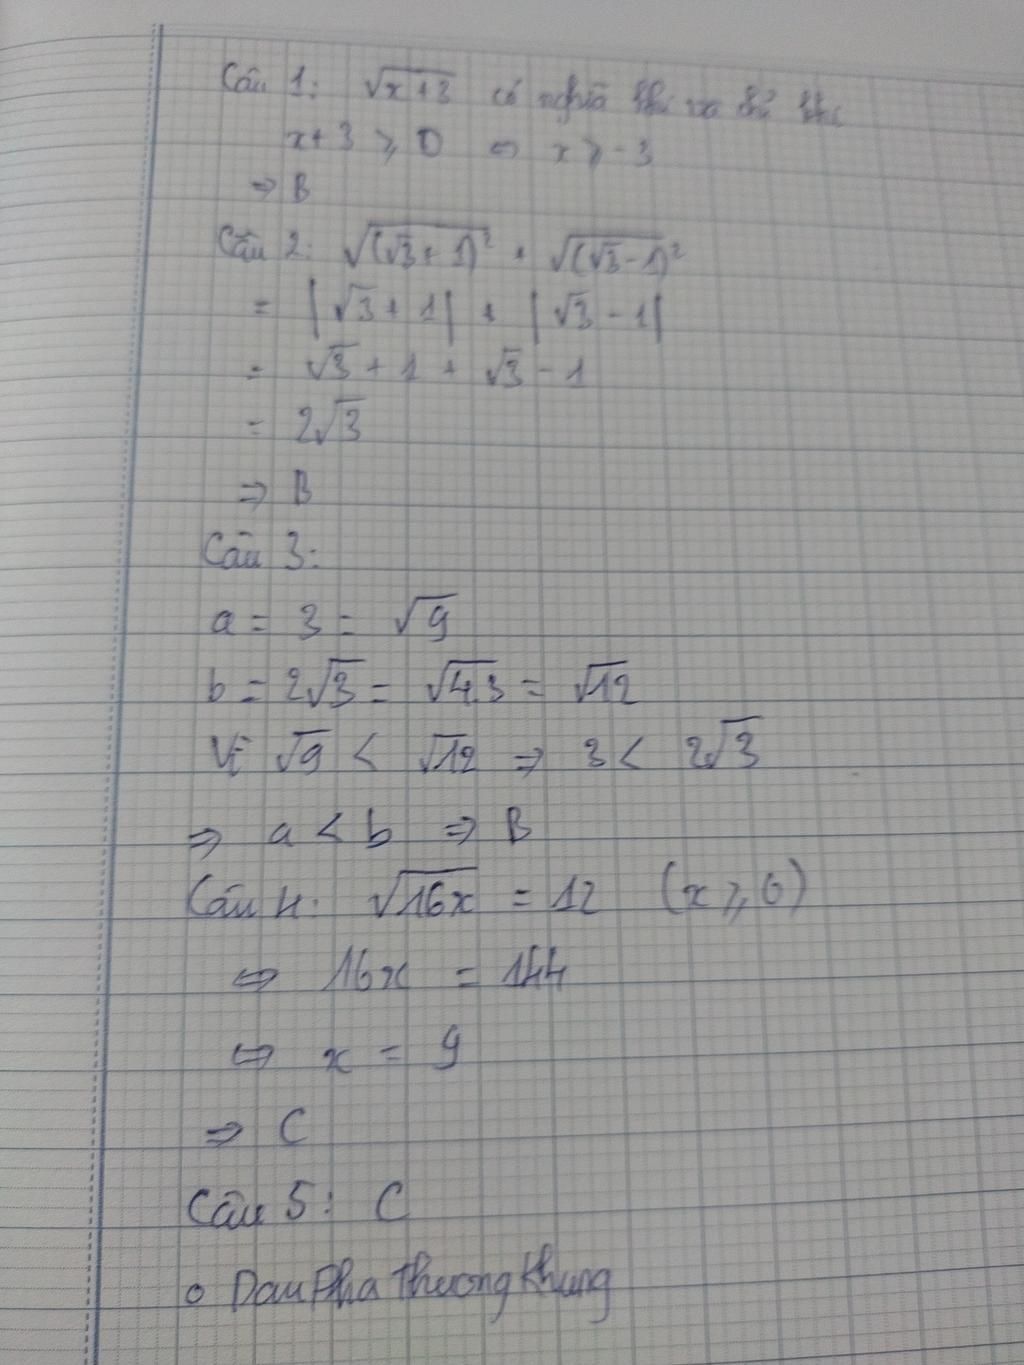 Câu 1: √(x+3) có nghĩa khi và chỉ khi
x+3 ⩾ 0 ⇔ x ⩾ -3
⇒ B
Câu 2: √((√3+1)²) + √((√3-1)²)
= |√3+1| + |√3-1|
= √3+1 + √3-1
= 2√3
⇒ B
Câu 3:
a = 3 = √9
b = 2√3 = √(4.3) = √12
Vì √9 < √12 ⇒ 3 < 2√3
⇒ a < b ⇒ B
Câu 4: √(16x) = 12 (x ⩾ 0)
⇔ 16x = 144
⇔ x = 9
⇒ C
Câu 5: C
○ DauPhaThuongKhung